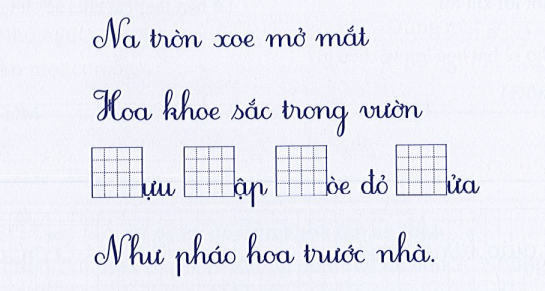 Na tròn xoe mở mắt
Hoa khoe sắc trong vườn
ựu ập òe đỏ ửa
Như pháo hoa trước nhà.